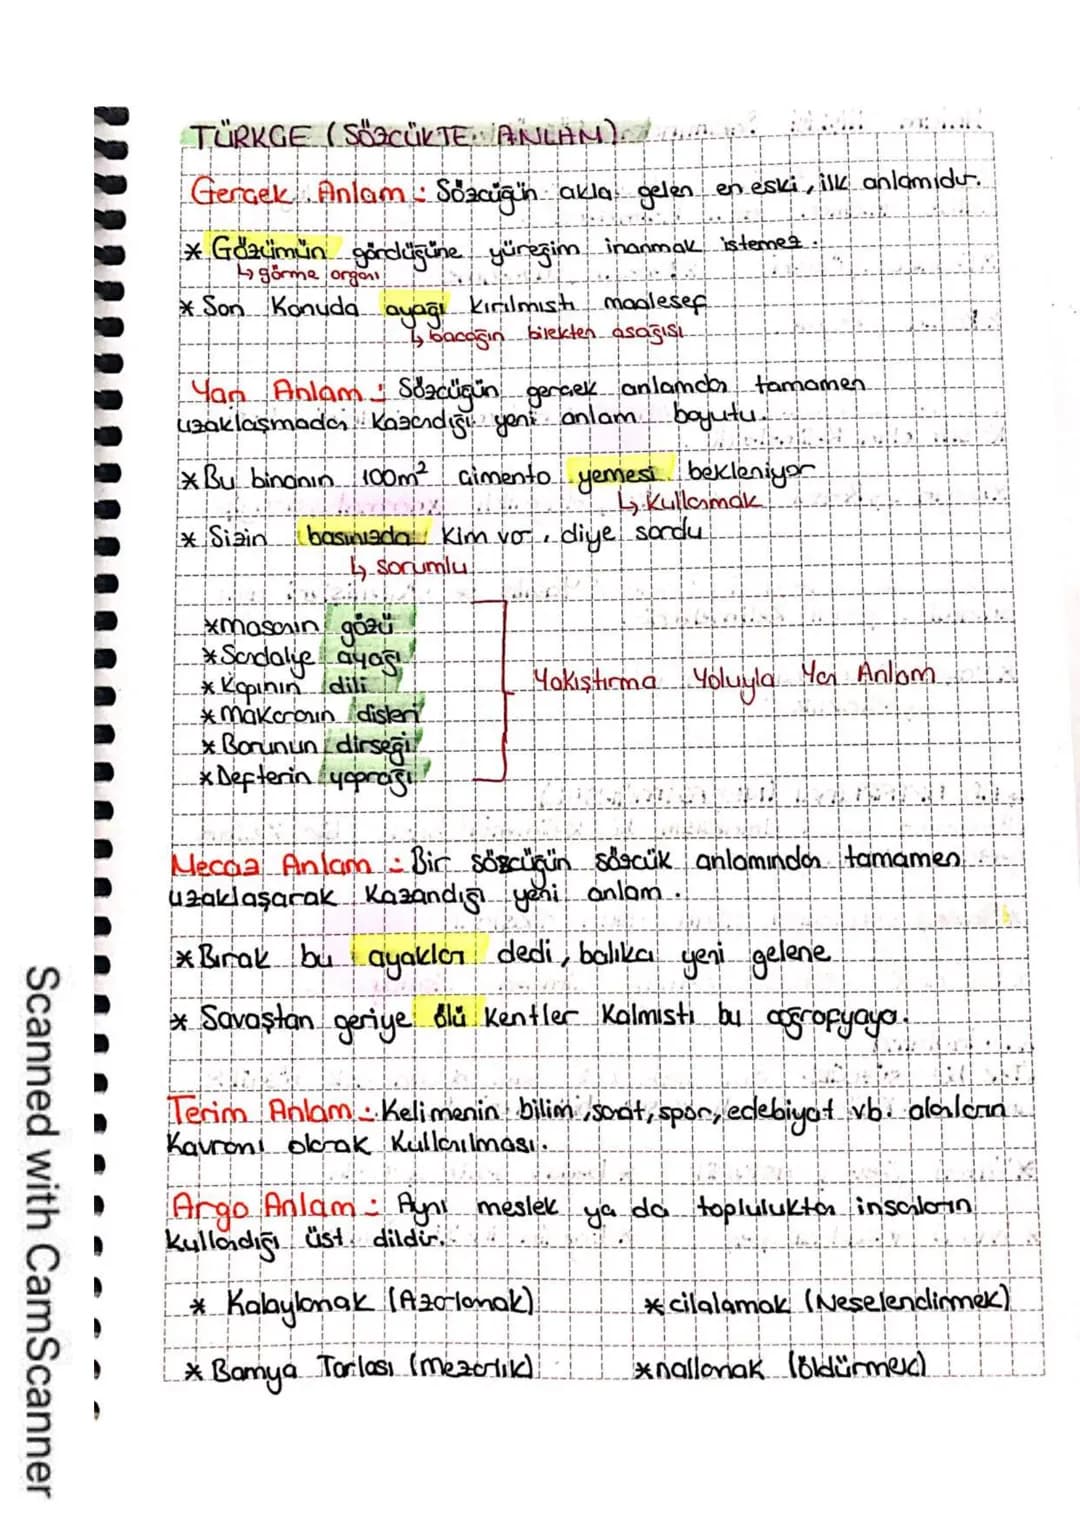 TÜRKGE (SÖZCÜKTE ANLAM)
Gerçek Anlam : Sözcüğün akla gelen en eski, ilk anlamıdır.
* Gözümün gördüğüne yüreğim inanmak istemez.
↳ görme organı
* Son Konuda ayağı kırılmıştı maalesef
↳ bacağın bilekten aşağısı
Yan Anlam : Sözcüğün gerçek anlamdan tamamen
uzaklaşmadan Kazandığı yeni anlam boyutu.
* Bu binanın 100m² çimento yemesi bekleniyor
↳ Kullanmak
* Sizin başınızda kim var, diye sordu
↳ sorumlu
* masanın gözü
* Sandalye ayağı
* Kapının dili
* makaranın dişleri
* Borunun dirseği
* Defterin yaprağı
Yakıştırma Yoluyla Yan Anlam
Mecaz Anlam : Bir sözcüğün sözcük anlamından tamamen
uzaklaşarak Kazandığı yeni anlam.
* Bırak bu ayakları dedi, balıkçı yeni gelene
* Savaştan geriye ölü kentler Kalmıştı bu coğrafyaya.
Terim Anlam : Kelimenin bilim, sanat, spor, edebiyat vb. alanların
Kavramı olarak Kullanılması.
Argo Anlam : Aynı meslek ya da topluluktan insanların
kullandığı üst dildir.
* Kalaylamak (Azarlamak)
* cilalamak (Neşelendirmek)
* Bamya Tarlası (mezarlık)
* nallamak (öldürmek)
Scanned with CamScanner